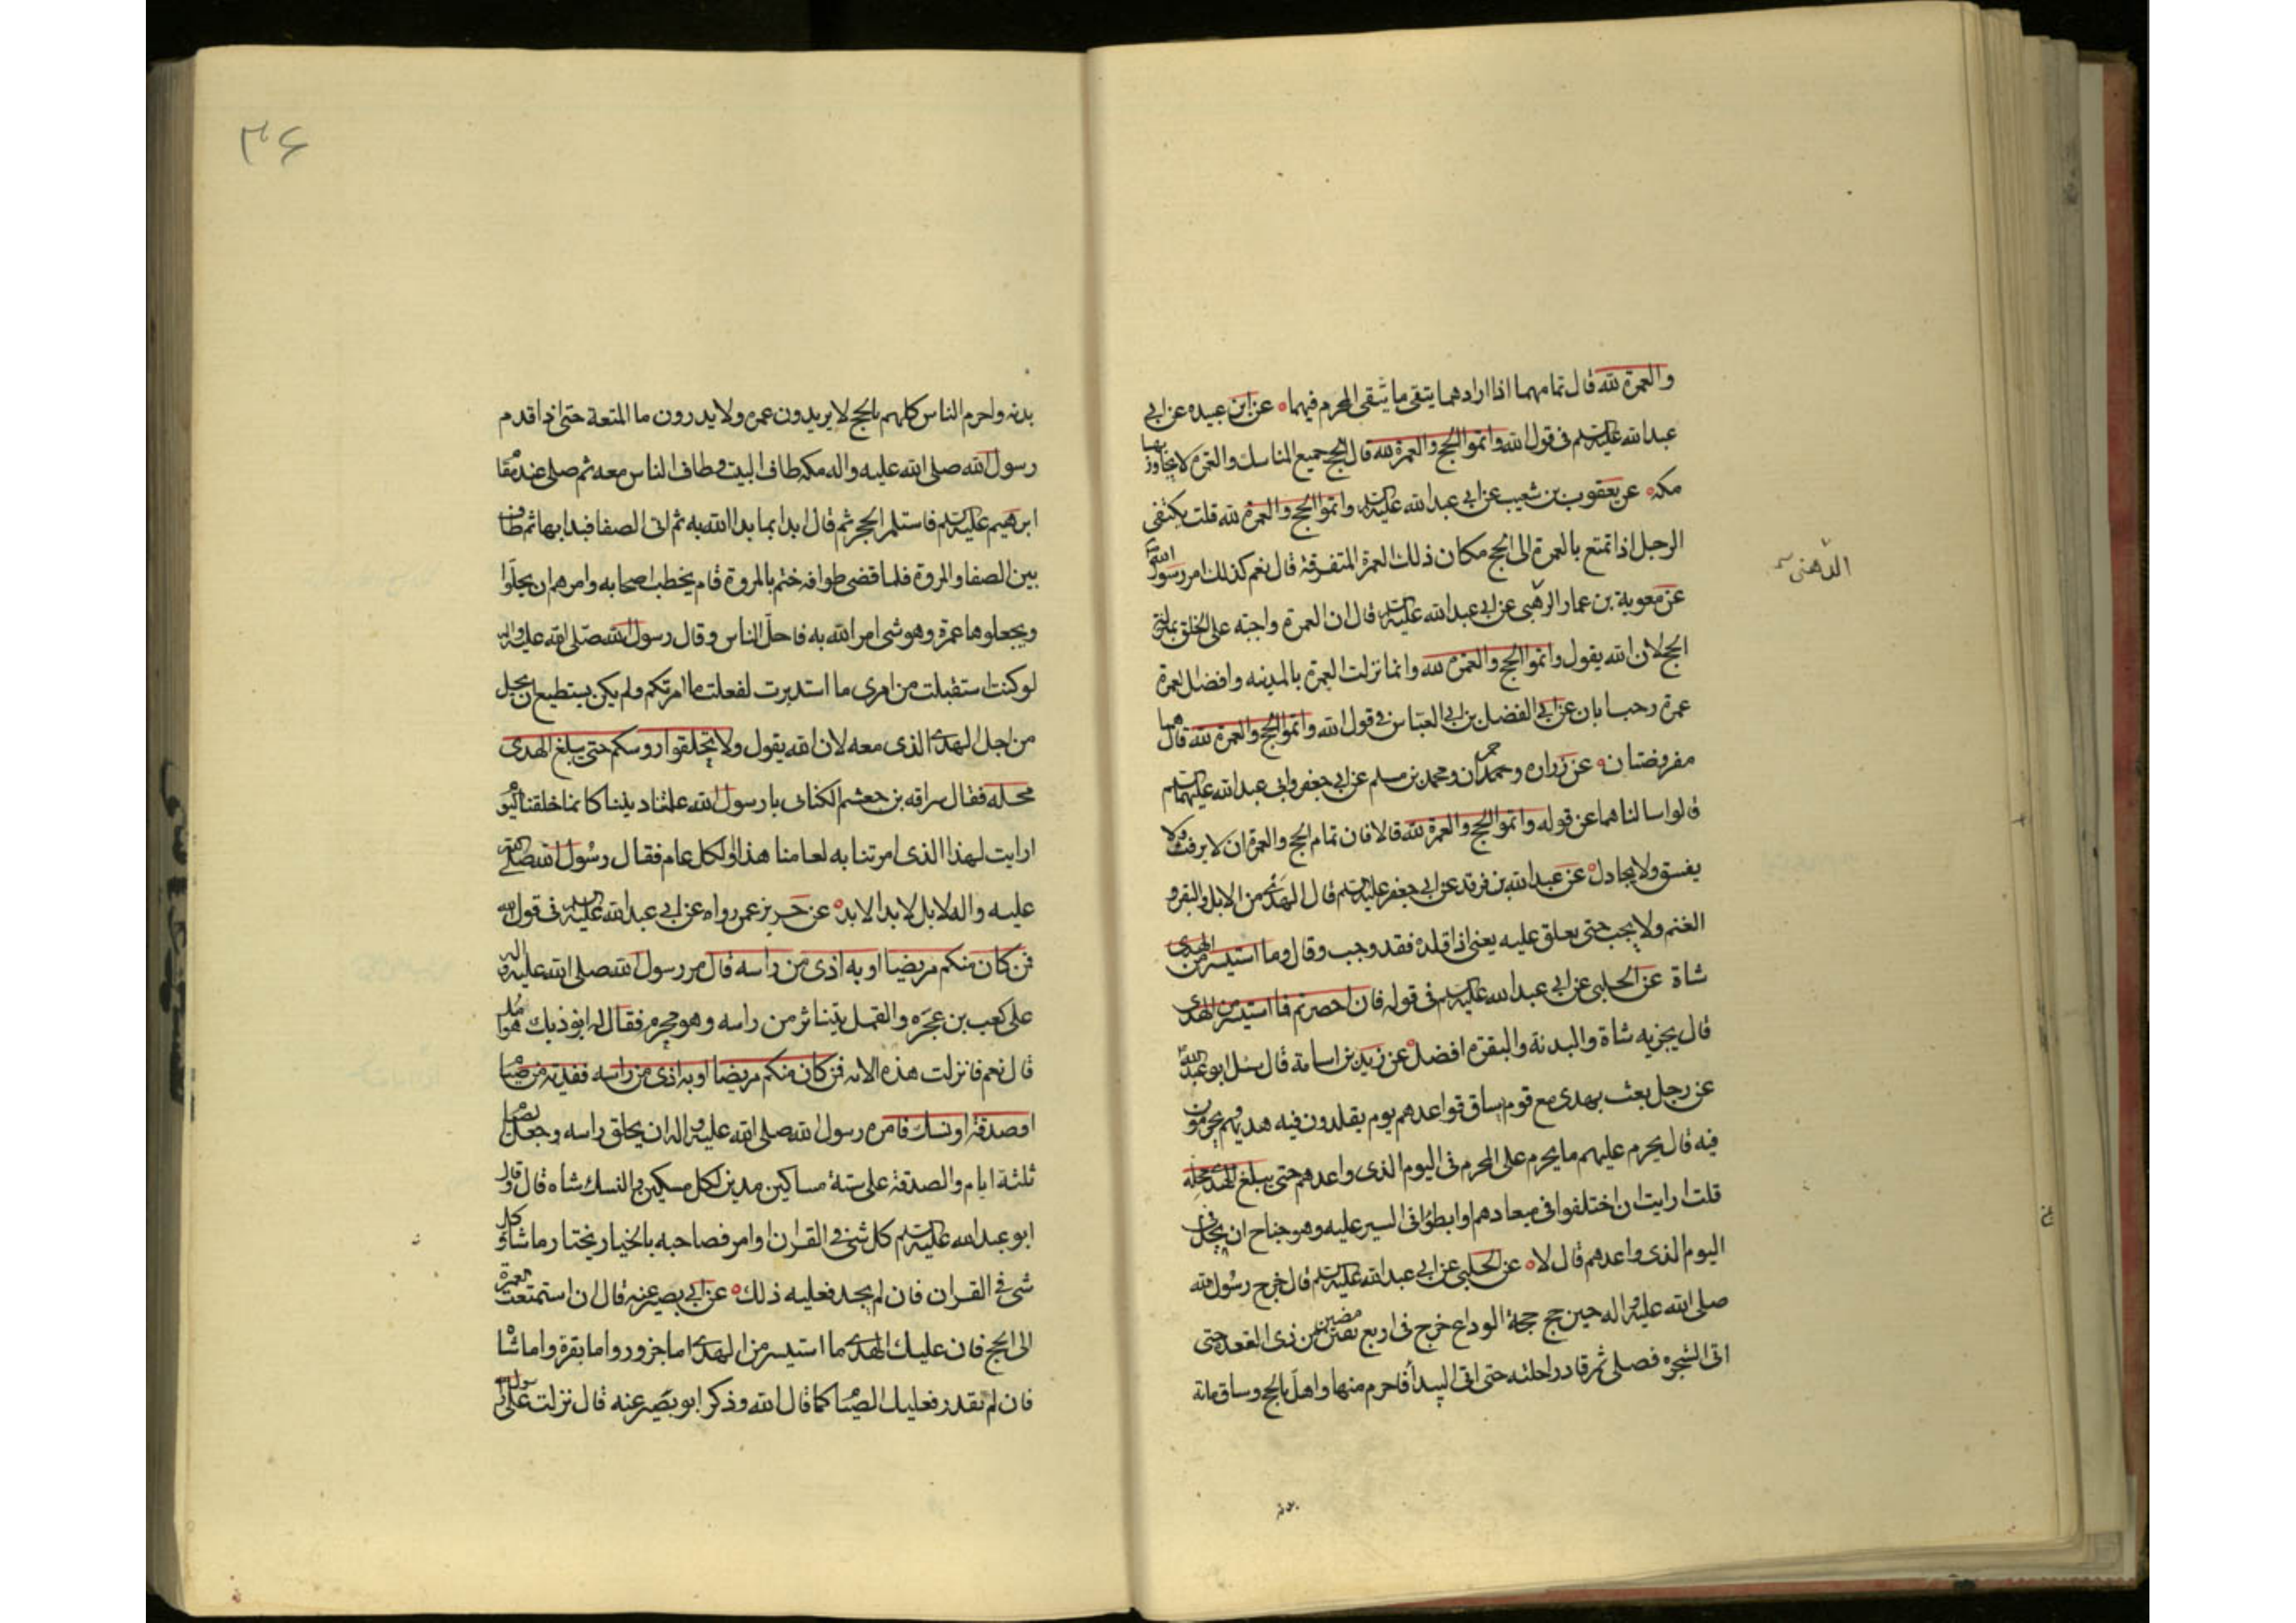 والعمرة لله قال تمامهما اذا ارادهما يتقى ما يتقى المحرم فيهما عن ابن عبيده عن ابى
عبد الله عليه السلم فى قول الله واتموا الحج والعمرة لله قال الحج جميع المناسك والعمرة لا يجاوز بها
مكه عن يعقوب بن شعيب عن ابى عبد الله عليه السلم واتموا الحج والعمرة لله قلت يكتفى
الرجل اذا تمتع بالعمرة الى الحج مكان ذلك العمرة المتفرقة قال نعم كذلك امر رسول الله
عن معوية بن عمار الرهبى عن ابى عبد الله عليه السلم قال ان العمرة واجبة على الخلق بمنزلة
الدهنى
الحج لان الله يقول واتموا الحج والعمره لله وانما نزلت العمرة بالمدينه وافضل العمرة
عمرة رجب ابان عن ابى الفضل بن ابى العباس فى قول الله واتموا الحج والعمرة لله قال هما
مفروضتان عن زراره وحمران ومحمد بن مسلم عن ابى جعفر وابى عبد الله عليهما السلم
قالوا سالناهما عن قوله واتموا الحج والعمرة لله قالا فان تمام الحج والعمرة ان لا يرفث ولا
يفسق ولا يجادل عن عبد الله بن فرقد عن ابى جعفر عليه السلم قال الهدى من الابل والبقر و
الغنم ولا يجب حتى يعلق عليه يعنى اذا قلده فقد وجب وقال وما استيسر من الهدى
شاة عن الحلبى عن ابى عبد الله عليه السلم فى قوله فان احصرتم فما استيسر من الهدى
قال يجزيه شاة والبدنة والبقره افضل عن زيد بن اسامة قال سئل ابو عبد الله
عن رجل بعث بهدى مع قوم يساق فواعدهم يوم يقلدون فيه هديهم ويحرمون
فيه قال يحرم عليهم ما يحرم على المحرم فى اليوم الذى واعدهم حتى يبلغ الهدى محله
قلت ارايت ان اختلفوا فى ميعادهم وابطؤا فى السير عليه وهو جناح ان يحل فى
اليوم الذى واعدهم قال لا عن الحلبى عن ابى عبد الله عليه السلم قال خرج رسول الله
صلى الله عليه واله حين حج حجة الوداع خرج فى اربع مضين من ذى القعده حتى
اتى الشجره فصلى ثم قاد راحلته حتى اتى البيدأ فاحرم منها واهل بالحج وساق مائة
بدنه
۳۶
بدنه واحرم الناس كلهم بالحج لا يريدون عمره ولا يدرون ما المتعة حتى اذا قدم
رسول الله صلى الله عليه واله مكه طاف البيت وطاف الناس معه ثم صلى عند مقام
ابرهيم عليه السلم فاستلم الحجر ثم قال ابدا بما بدا الله به ثم اتى الصفا فبدا بها ثم طاف
بين الصفا والمروة فلما قضى طوافه ختم بالمروة قام يخطب اصحابه وامرهم ان يحلوا
ويجعلوها عمرة وهو شى امر الله به فاحل الناس وقال رسول الله صلى الله عليه واله
لو كنت استقبلت من امرى ما استدبرت لفعلت ما امرتكم ولم يكن يستطيع ان يحل
من اجل الهدى الذى معه لان الله يقول ولا تحلقوا روسكم حتى يبلغ الهدى
محله فقال سراقه بن جعشم الكنانى يا رسول الله علمنا ديننا كانما خلقنا اليوم
ارايت لهذا الذى امرتنا به لعامنا هذا او لكل عام فقال رسول الله صلى الله
عليه واله لا بل لابد الابد عن حريز عمن رواه عن ابى عبد الله عليه السلم فى قول الله
فمن كان منكم مريضا او به اذى من راسه قال مر رسول الله صلى الله عليه واله
على كعب بن عجره والقمل يتناثر من راسه وهو محرم فقال له ايؤذيك هوامك
قال نعم فانزلت هذه الايه فمن كان منكم مريضا او به اذى من راسه ففدية من صيام
او صدقة او نسك فامره رسول الله صلى الله عليه واله ان يحلق راسه وجعل الصيام
ثلثة ايام والصدقة على ستة مساكين مدين لكل مسكين والنسك شاه قال وقال
ابو عبد الله عليه السلم كل شى فى القران او امر فصاحبه بالخيار يختار ما شاء وكل
شى فى القران فان لم يجد فعليه ذلك عن ابى بصير عنه قال ان استمتعت بالعمرة
الى الحج فان عليك الهدى ما استيسر من الهدى اما جزور واما بقرة واما شاة
فان لم تقدر فعليك الصيام كما قال الله وذكر ابو بصير عنه قال نزلت على رسول الله